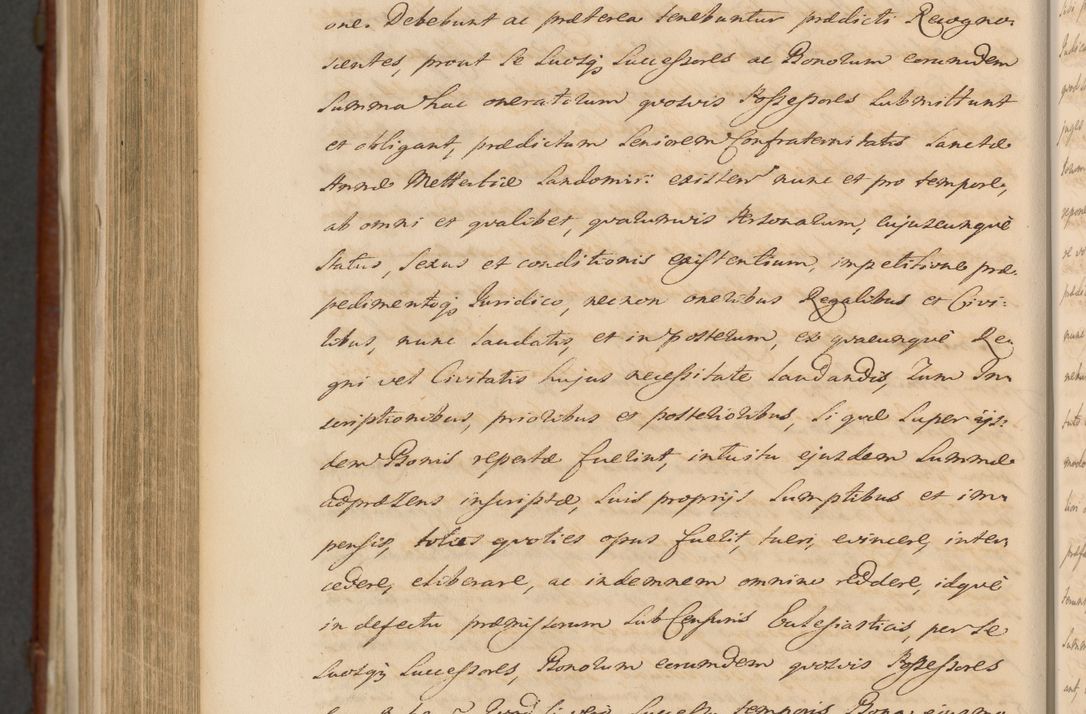 one. Debebunt ac præterea tenebuntur prædicti Recogno-
scentes, prout se suosq; Successores ac Bonorum eorumdem
summa hac oneratorum quosvis Possessores submittunt
et obligant, prædictum Seniorem Confraternitatis Sanctæ
Annæ Metterciæ Sandomir: existen nunc et pro tempore,
ab omni et qvalibet, qvarumvis Personarum, cujuscunquè
Status, Sexus et conditionis existentium, impetitione præ-
pedimentoq; Juridico, necnon oneribus Regalibus et Civi:
libus, nunc laudatis, et in posterum, ex qvacunquè Re-
gni vel Civitatis hujus necessitate laudandis, Tum In-
scriptionibus, prioribus et posterioribus, si qvæ super ijs:
dem Bonis repertæ fuerint, intuitu ejusdem Summæ
adpræsens inscriptæ, suis proprijs Sumptibus et im-
pensis, toties qvoties opus fuerit, tueri, evincere, inter-
cedere, eliberare, ac indemnem omnino reddere, idquè
in defectu præmissorum sub Censuris Ecclesiasticis, per se
suosq; Successores, Bonorum eorumdem qvosvis Possessores